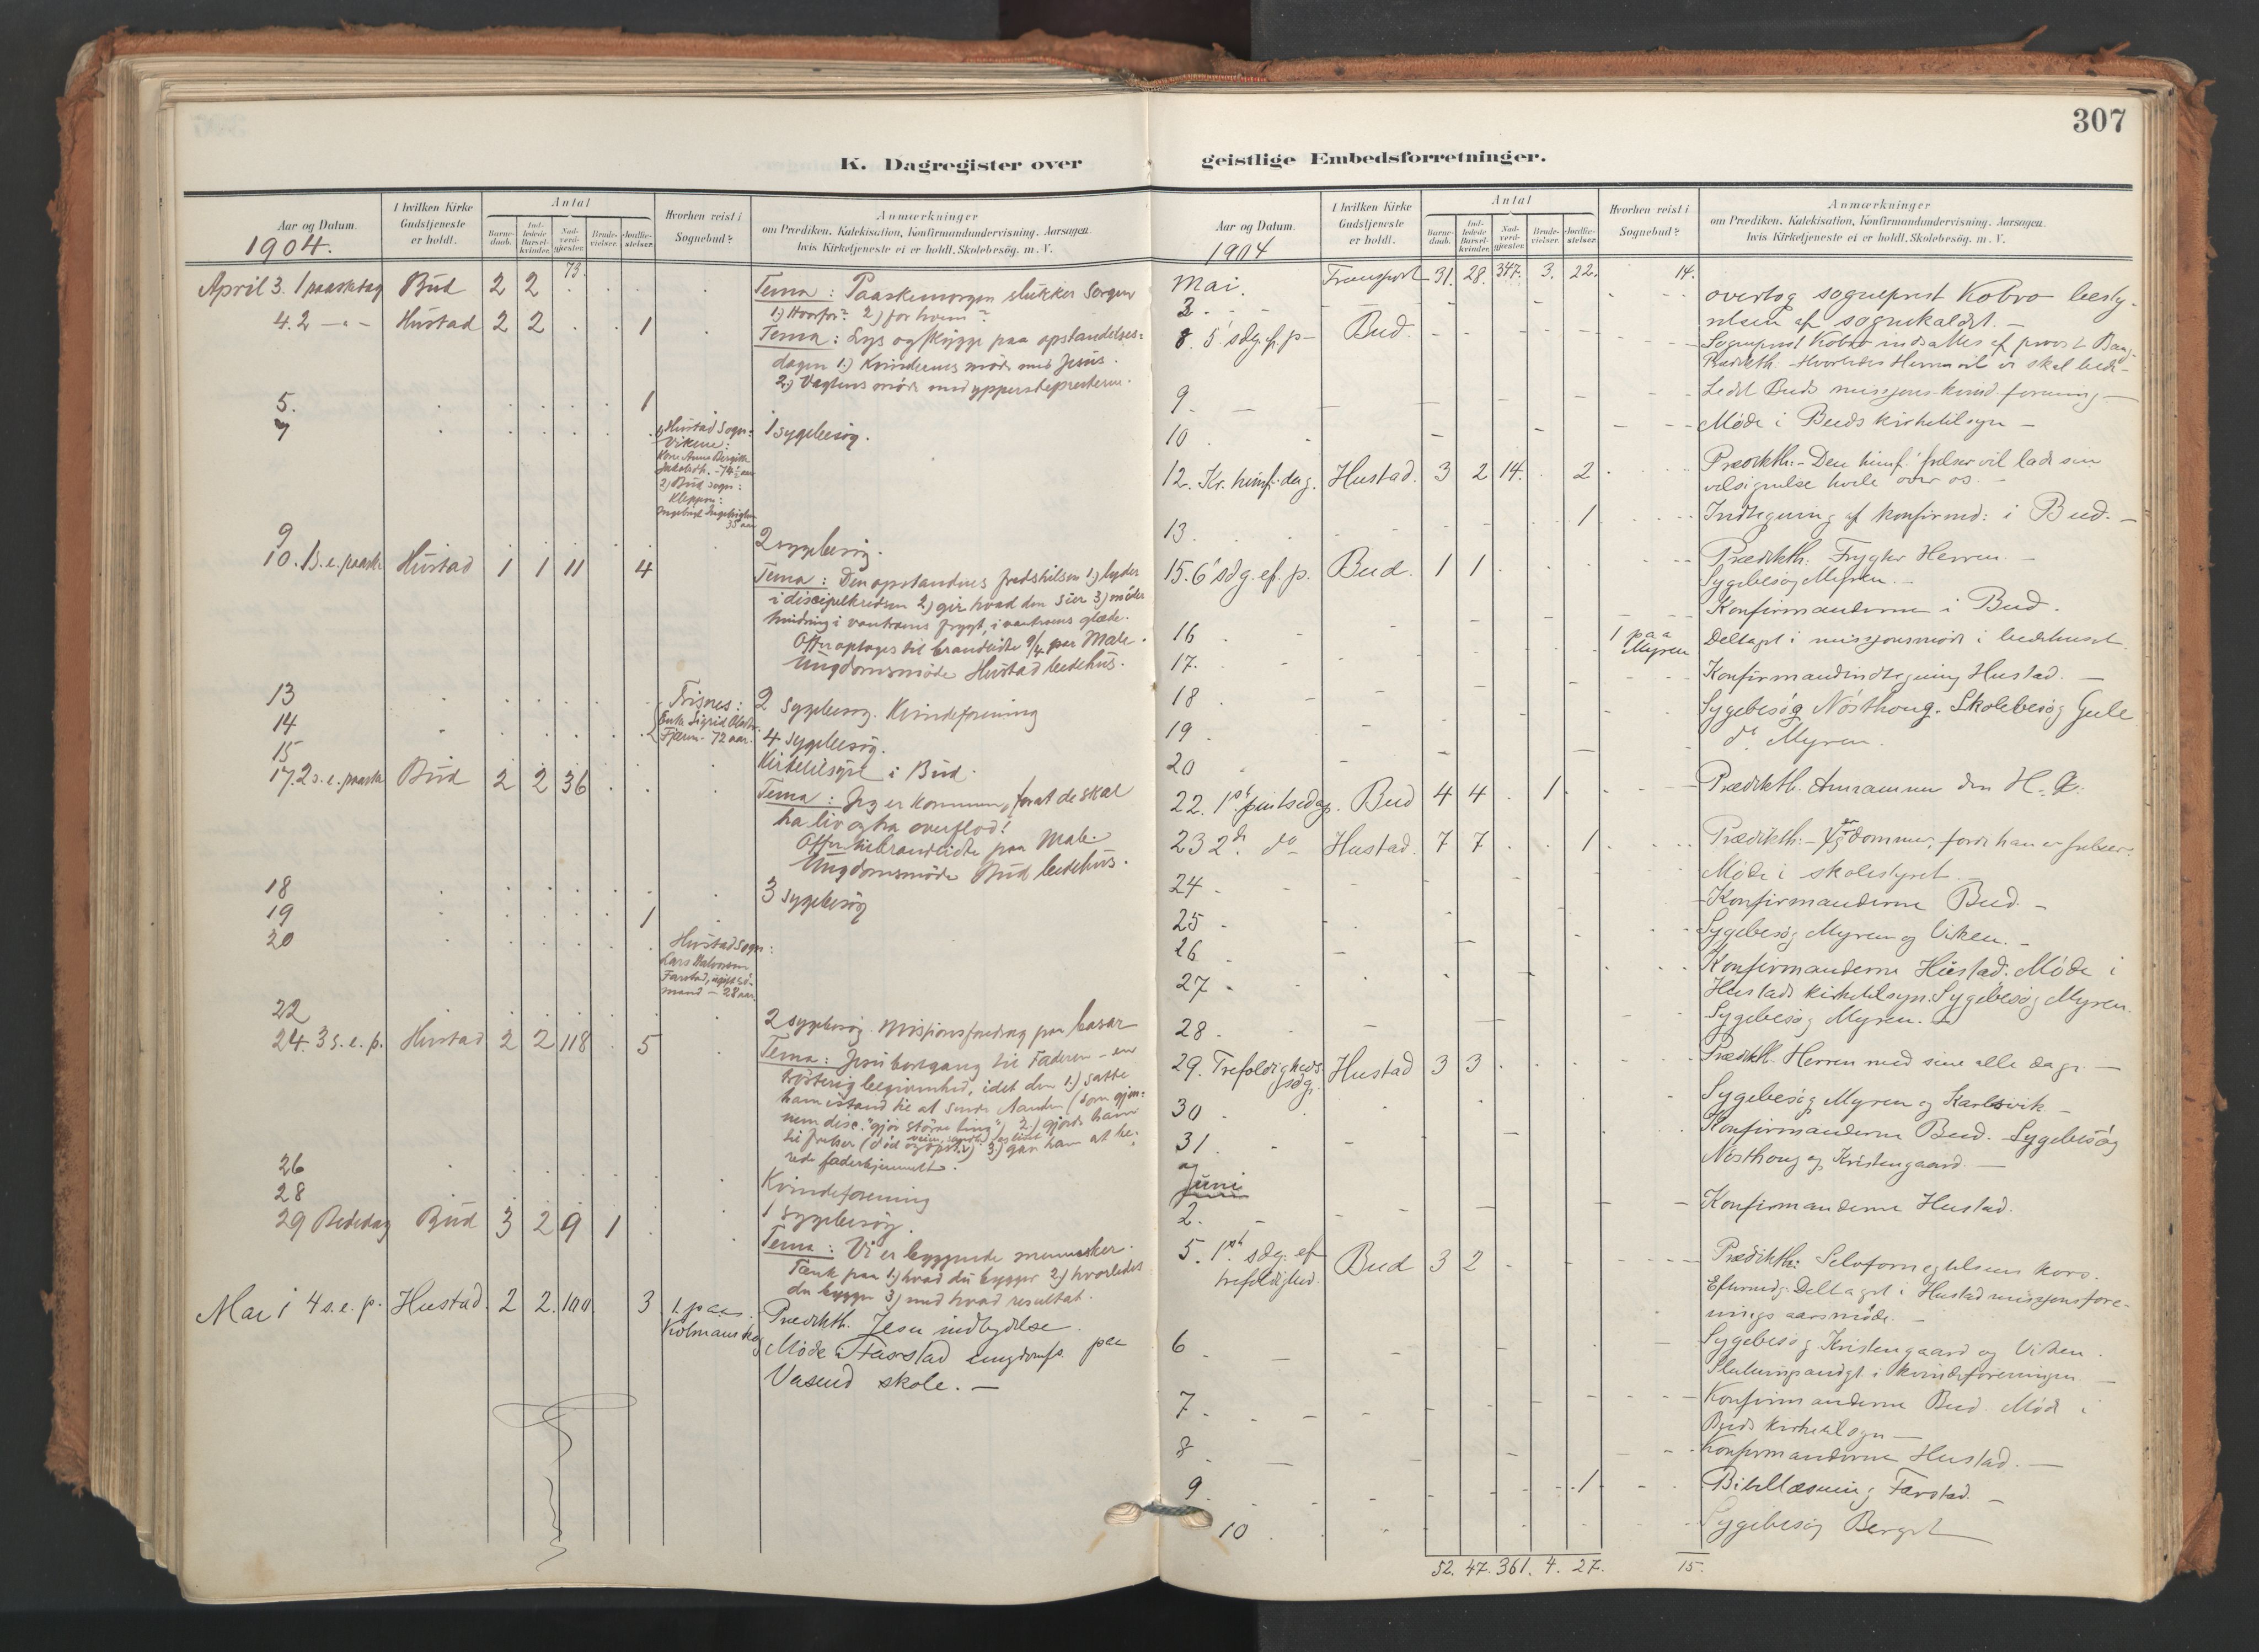 307
K. Dagregister over geistlige Embedsforretninger.
Aar og Datum.
1904.
I hvilken Kirke Gudstjeneste er holdt.
Antal
Barnedaab.
Indledede Barselkvinder.
Nadverdgjester.
Brudevielser.
Jordfæstelser.
Hvorhen reist i Sognebud?
Anmærkninger
om Prædiken, Katekisation, Konfirmandundervisning, Aarsagen
hvis Kirketjeneste ei er holdt, Skolebesøg, m. V.
April 3. 1 paaskedag Bud 2 2 73. Tema: Paaskemorgen slukker Sorgen
1.) Hvorfor? 2) for hvem?
4. 2 — " — Hustad 2 2 . . 1 Tema: Lys og skygge paa opstandelses=
dagen 1.) Kvindernes møde med Jesus.
2.) Vagtens møde med yppersteprestene.
5. 1
7 1) Hustad Sogn: 1 sygebesøg.
Vikene:
Anne
2) Bud sogn:
35 aar
9 2 sygebesøg.
10. 1 s. e. paaske Hustad 1 1 11 4 Tema: Den opstandnes fredshilsen 1.) lyder
i discipelkredsen 2) gir hvad den sier 3) møder
Offer optages til brandlidte 9/4 paa Male.
Ungdomsmøde Hustad bedehus.
13 2 sygebesøg. Kvindeforening
14 Enke Sigrid 72 aar. 4 sygebesøg.
15 Kirketilsyn i Bud.
17. 2 s. e. paaske Bud 2 2 36 Tema: Jeg er kommen, forat de skal
ha liv og ha overflod!
Offer til brandlidte paa Male.
Ungdomsmøde Bud bedehus.
18 3 sygebesøg
19 1
20 Hustad sogn:
Lars
28 aar
22 2 sygebesøg. Misjonsforedrag paa basar
24. 3 s. e. p. Hustad 2 2 118 5 Tema: Jesu bortgang til Faderen – en
begivenhed, idet den 1.) satte
ham istand til at sende Aanden (som gjen=
nem disc. "gjør større ting") 2.) gjorde ham
til frelser 3.) gav ham at be=
rede faderhjemmet.
26 Kvindeforening
28 1 sygebesøg.
29 Bededag Bud 3 2 9 1 Tema: Vi er byggende mennesker.
Tænk paa 1.) hvad du bygger 2.) hvorledes
du bygger 3.) med hvad resultat.
Mai 1 4 s. e. p. Hustad 2 2. 100 3 1 paa Prædikth. Jesu indbydelse.
Møde i Farstad ungdomsf. paa
Vasend skole. —
Aar og Datum.
1904
I hvilken Kirke Gudstjeneste er holdt.
Antal
Barnedaab.
Indledede Barselkvinder.
Nadverdgjester.
Brudevielser.
Jordfæstelser.
Hvorhen reist i Sognebud?
Anmærkninger
om Prædiken, Katekisation, Konfirmandundervisning, Aarsagen
hvis Kirketjeneste ei er holdt, Skolebesøg, m. V.
Mai. Transport 31. 28. 347. 3. 22. 14.
overtog sogneprest Kobro besty-
relsen af sognekaldet. —
8. 5' sdg. ef. p — Bud. Sogneprest Kobro indsattes af provst
Prædikth. Hvorledes Herren vil vi skal bede —
9 Ledet Buds misjons-kvindeforening —
10 Møde i Buds kirketilsyn —
12. Kr. himf. dag. Hustad. 3 2 14. 2 Prædikth: – Den himf. frelser vil lade sin
velsignelse hvile over os. —
13 1 Indtegning af konfirmd: i Bud. —
15. 6' sdg. ef. p. Bud. 1 1 Prædikth. Frygter Herren —
Sygebesøg Myren. —
Konfirmanderne i Bud.
16 1 paa Myren Deltaget i misjonsmøde i bedehuset
17. Konfirmandindtegning Hustad. —
18 Sygebesøg Nøsthoug. Skolebesøg Gule
19 do Myren.
20
22. 1ste pintsedag. Bud 4 4 . 1 Prædikth. Annammer den H. A.
23 2d. do Hustad. 7 7 1 Prædikth: – Jg er dommer, fordi han er frelser.
24 Møde i skolestyret —
25 Konfirmanderne Bud. —
26 Sygebesøg Myren og Viken. —
27 Konfirmanderne Hustad. Møde i
Hustads kirketilsyn. Sygebesøg Myren.
28 Sygebesøg Myren. —
29. Trefoldigheds sdg. Hustad 3 3 Prædikth. Herren med sine alle dage. —
30 Sygebesøg Myren og Karlsvik —
31. Konfirmanderne Bud. Sygebesøg
Nøsthoug og Kristengaard. —
og
Juni
2. Konfirmanderne Hustad.
5. 1ste sdg. ef trefoldighed. Bud 3 2 Prædikth: Selvfornegtelsens kors.
Eftermdg. Deltaget i Hustad misjonsfore-
nings aarsmøde. —
6 Sygebesøg Kristengaard og Viken.
i kvindeforeningen —
7 Konfirmanderne Bud. Møde i
Buds kirketilsyn —
8 Konfirmanderne Hustad. —
9 1 Bibellæsning Farstad. —
10 Sygebesøg Berget
52. 47. 361. 4. 27. 15.